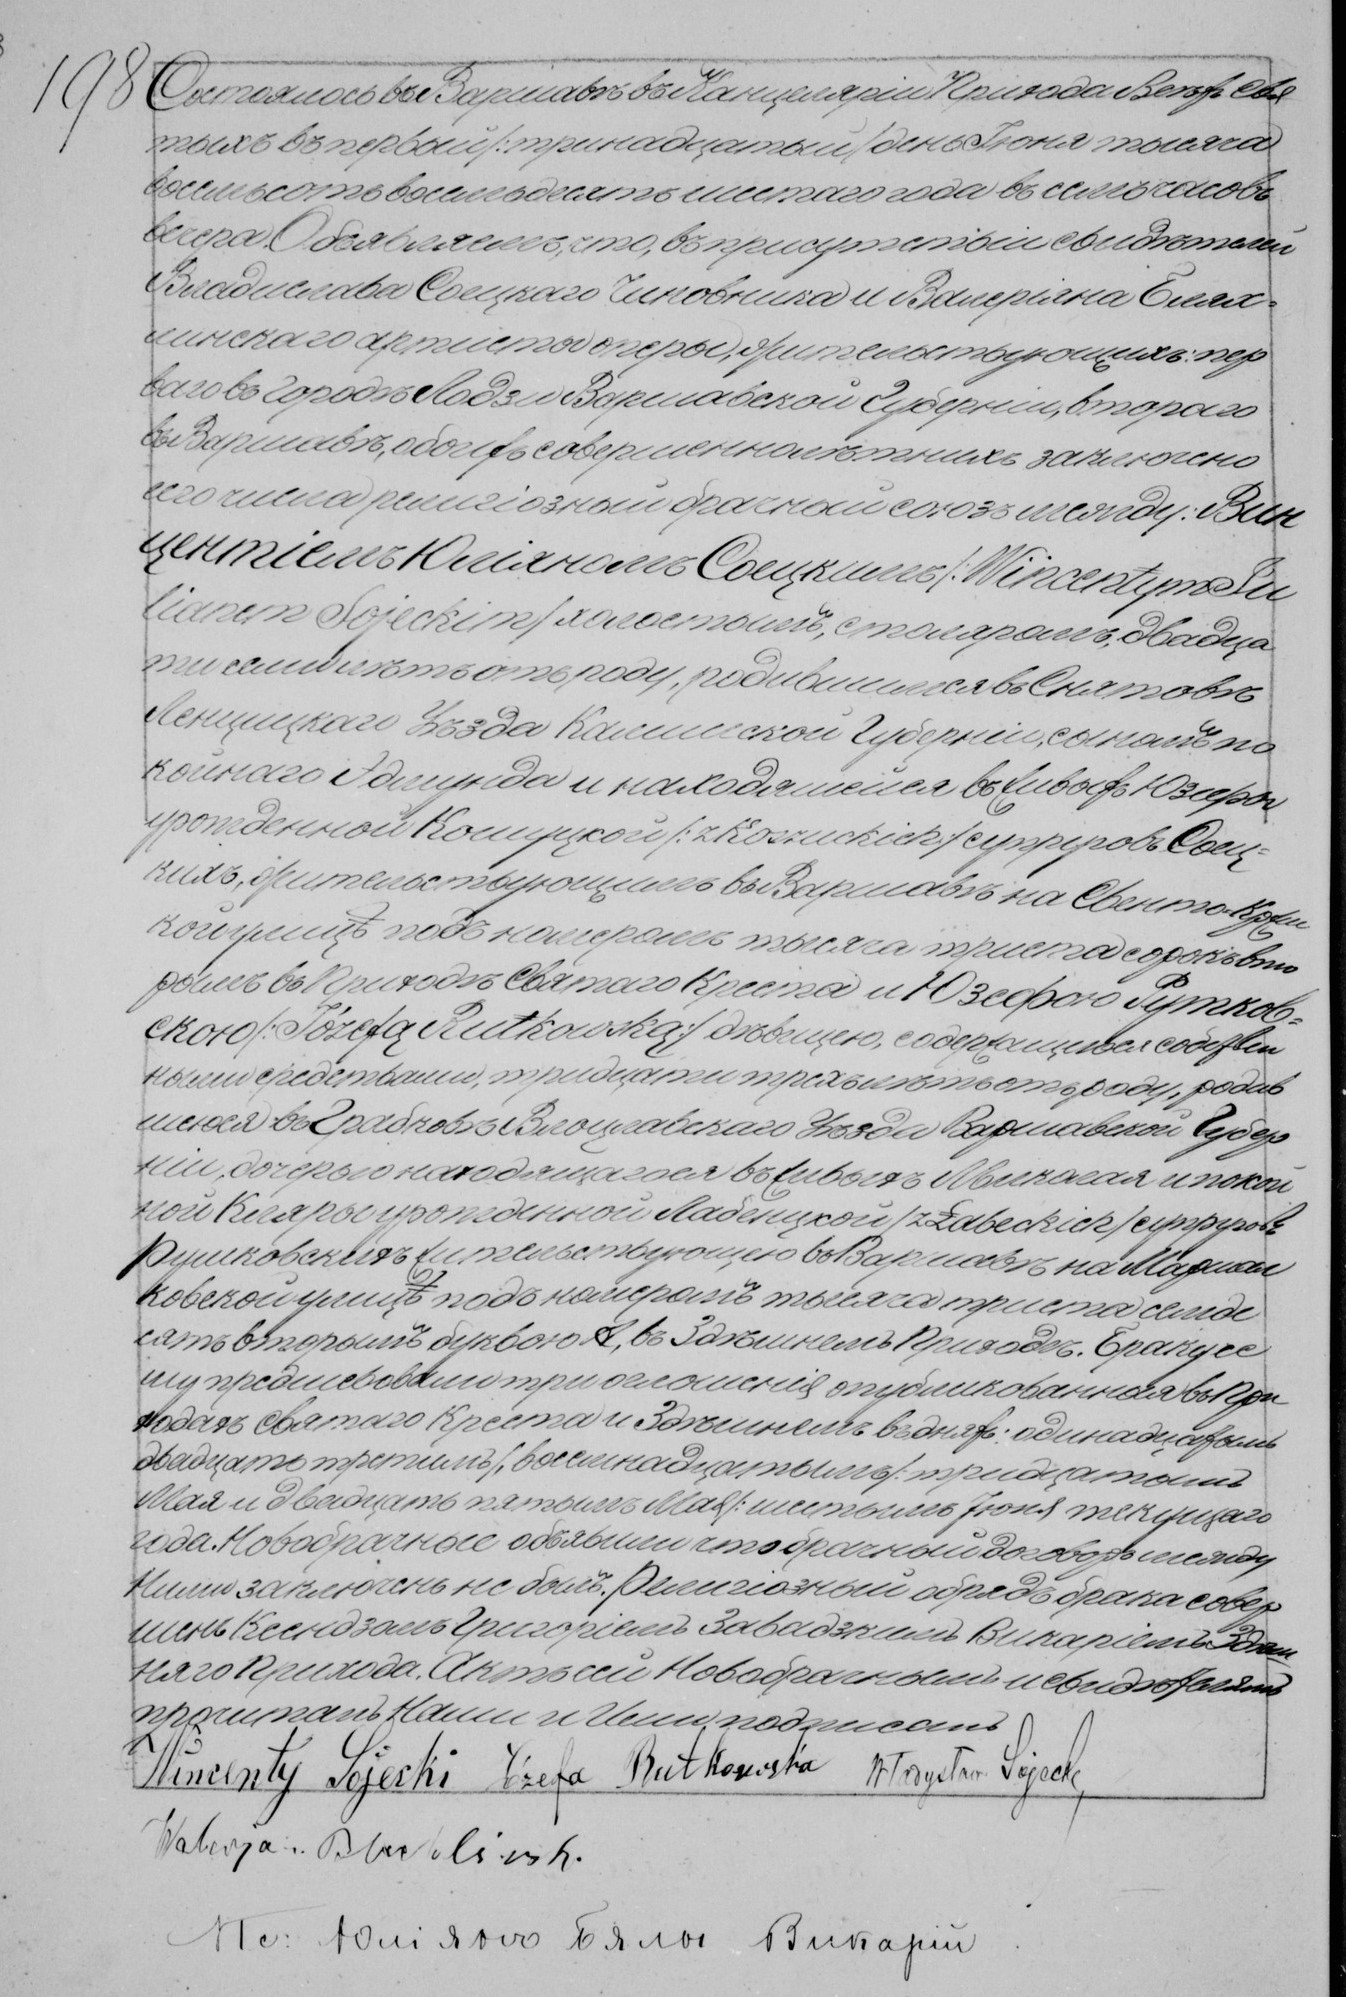 198 Состоялось въ Варшавѣ въ Канцеляріи Прихода Всѣхъ Свя
тыхъ въ первый /: тринадцатый / день Іюня тысяча
восемьсотъ восемьдесятъ шестаго года въ семь часовъ
вечера. Объявляемъ, что, въ присутствіи свидѣтелей
Владислава Соецкаго Чиновника и Валеріяна Блях-
линскаго артиста оперы, жительствующихъ: пер
ваго въ Городѣ Лодзи Варшавской Губерніи, втораго
въ Варшавѣ, обоихъ совершеннолѣтнихъ заключено
сего числа религіозный брачный союзъ между: Вин
центіемъ Юліяномъ Соецкимъ /: Wincentym Ju
lianem Sojeckim / холостымъ, столяромъ, двадца
ти семи лѣтъ отъ роду, родившимся въ Снятовѣ
Ленчицкаго Уѣзда Калишской Губерніи, сыномъ по
койнаго Эдмунда и находящейся въ живыхъ Юзефы
урожденной Кошуцкой /: z Koszuckich :/ супруговъ Соец-
кихъ, жительствующимъ въ Варшавѣ на Свенто-Кржи
кой улицѣ подъ номеромъ тысяча триста сорокъ вто
рымъ въ Приходѣ Святаго Креста и Юзефою Рутков-
скою /: Józefą Rutkowską :/ дѣвицею, содержащеюся собствен
ными средствами, тридцати трехъ лѣтъ отъ роду, родив
шеюся въ Грабковѣ Влоцлавскаго Уѣзда Варшавской Губер
ніи, дочерью находящагося въ живыхъ Миколая и покой
ной Кляры урожденной Лабенцкой / z Łabeckich / супруговъ
Рутковскихъ жительствующею въ Варшавѣ на Маршал
ковской улицѣ подъ номеромъ тысяча триста семьде
сятъ вторымъ буквою А, въ Здѣшнемъ Приходѣ. Браку се
му предшествовали три оглашенія опубликованная въ При
ходахъ Святаго Креста и Здѣшнемъ въ дняхъ: одинадцатымъ
двадцать третьимъ /, восемнадцатымъ /: тридцатымъ
Мая и двадцать пятымъ Мая /: шестымъ Іюня текущаго
года. Новобрачные объявили что брачный договоръ между
Ними заключенъ не былъ. Религіозный обрядъ брака совер
шенъ Ксендзомъ Григоріемъ Завадзкимъ Викаріемъ Здѣш
няго Прихода. Актъ сей Новобрачнымъ и свидѣтелямъ
прочитанъ Нами и Ими подписанъ
Wincenty Sojecki Józefa Rutkowska Władysław Sojecki
Waleryan
Юліянъ Бялы Викарій